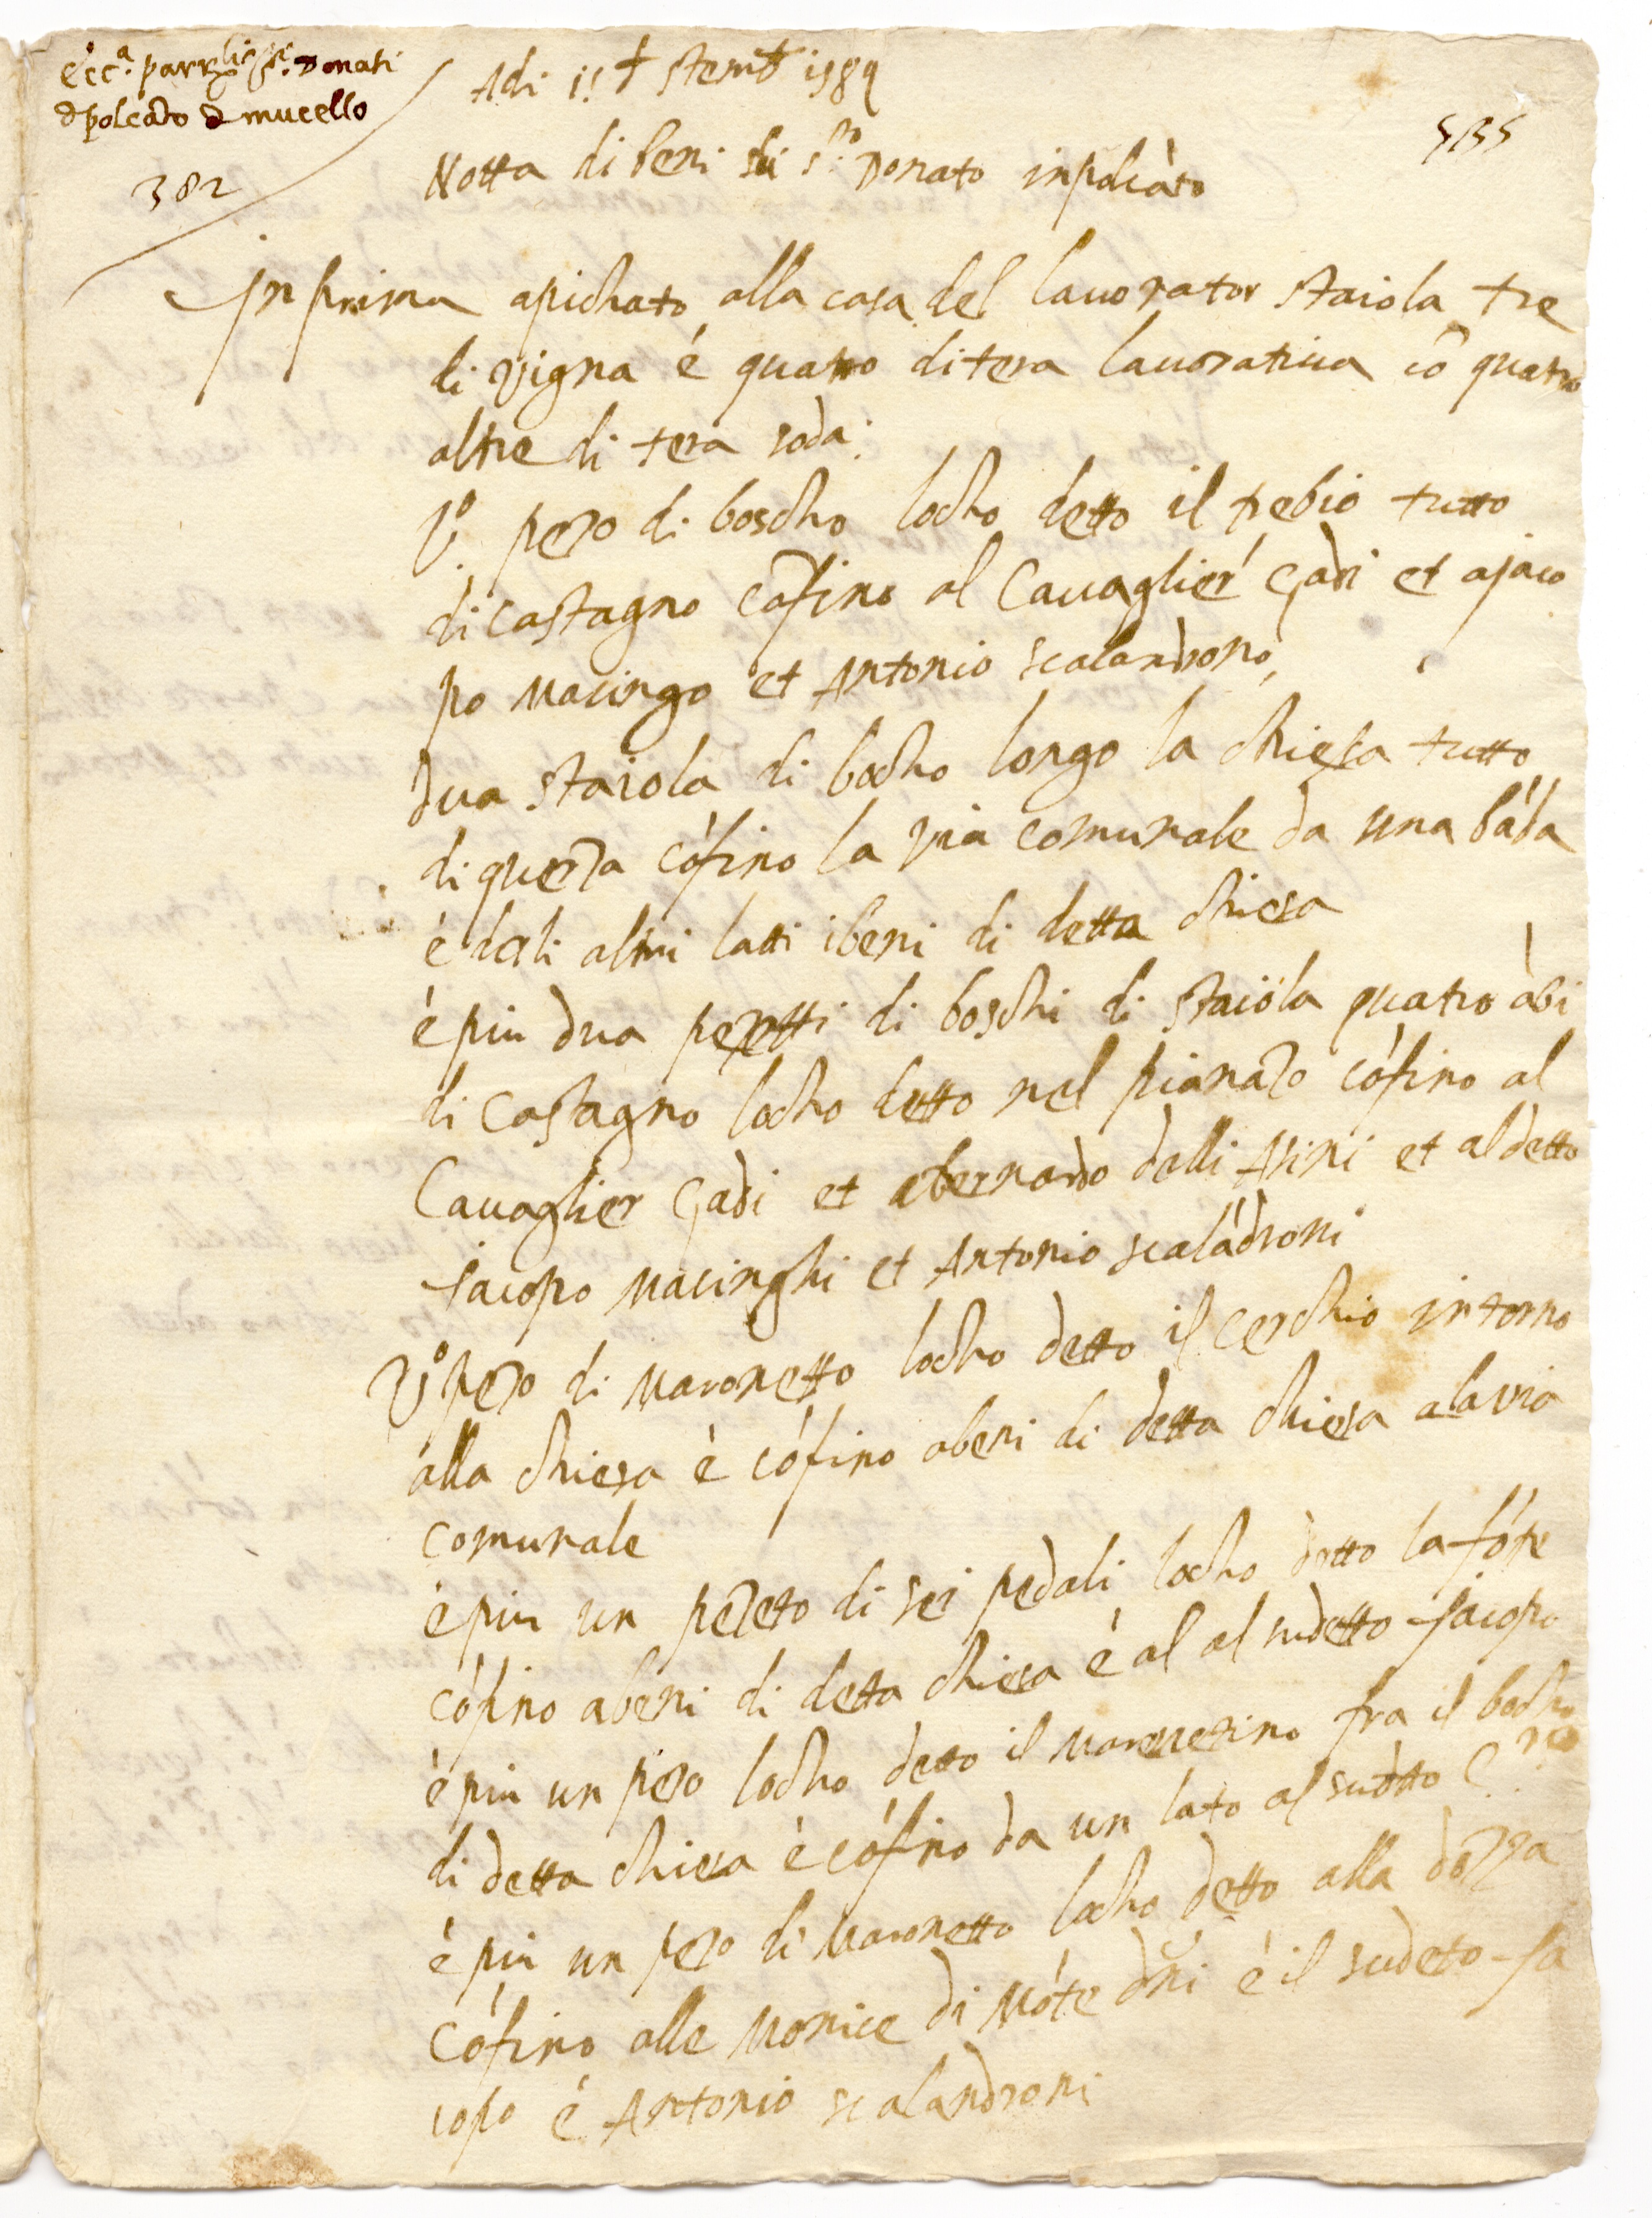 Ecc.a parr.lis S.ti Donati
d polcāto d mucello
382
Adi i! † stemb 1589
535
Notta di beni di s.to Donato inpolcāto
Jn prima apichato alla casa del lauorator staiola tre
di vigna é quatro di tera lauoratiua cō quatro
altre di tera soda:
Vº pezo di boscho locho detto il trebio tutto
di castagno cōfino al Cauaglier Gadi et ajaco
po Macingo et Antonio scalandrono,
dua staiola di bocho longo la chiesa tutto
di querza cófino la via comunale da una báda
è dali altri latti ibeni di detta chiesa
è piu dua pezetti di boschi di staióla quatro ábi
di Castagno locho detto nel pianazo cófino al
Cauaglier Gadi et abernardo delli Asini et aldetto
Jacopo Macinghi et Antonio scaládroni
Vº pezo di Maronetto locho detto il cerchio intorno
alla chiesa è cófino abeni di detta chiesa alavia
comunale
è piu un pezeto di sei pedali locho detto la fóte
cófino abeni di detta chiesa è al al sudetto Jacopo
è piu un pezo locho detto il Maronetino fra il bocho
di detta chiesa è cófino da un lato al sudetto C.re
è piu un pezo di Maronetto locho detto alla dozza
Cófino alle Monice di Móte dñi è il sudeto Ja
copo é Antonio scalandroni